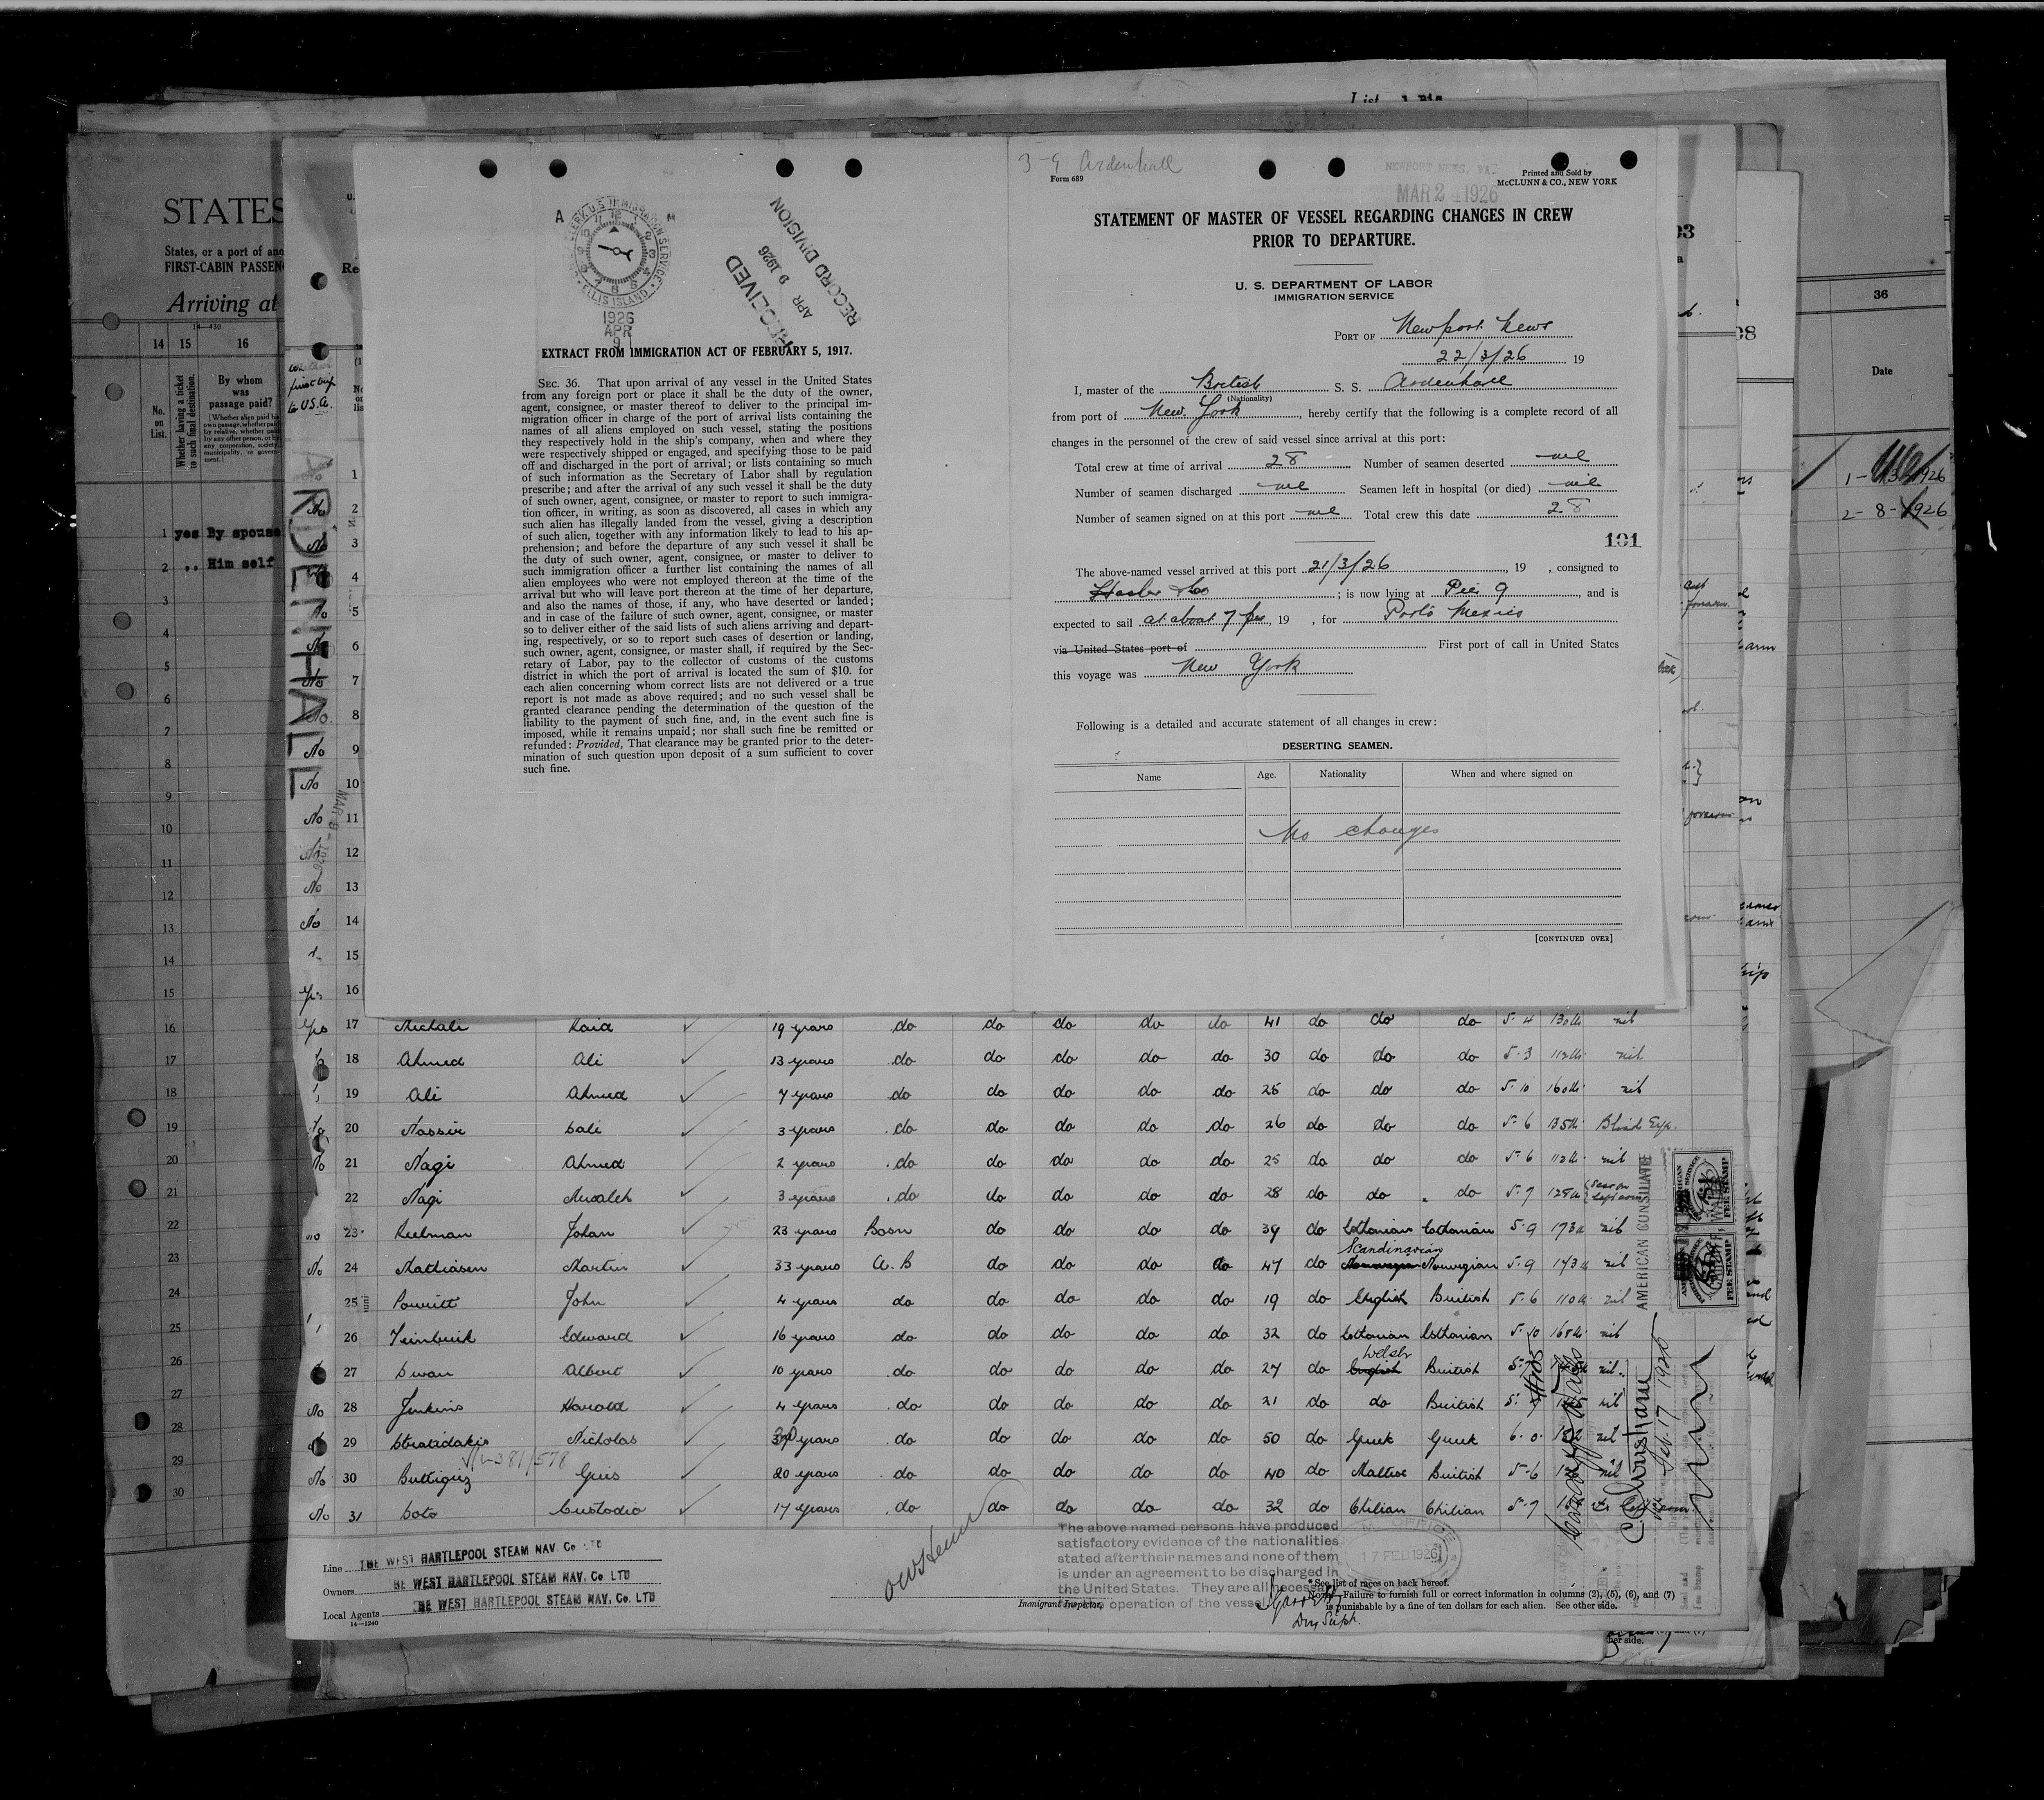 List
STATES
States, or a port of
FIRST-CABIN
Arriving at
14—430
14 15 16
No. on List.
Whether having a ticket to such final destination.
By whom was passage paid?
1 yes By spouse
2 ,, Him self
3
4
5
6
7
8
9
10
11
12
13
14
15
16
17
18
19
20
21
22
23
24
25
26
27
28
29
30
36
Date
first trip
to U.S.A.
ARDENHALL
1
2
3
4
5
6
7
8
9
10
11
12
13
14
15
16
A M
CLERK U.S. IMMIGRATION SERVICE
ELLIS ISLAND
1926
APR
9
RECEIVED
APR 9 1926
RECORD DIVISION
EXTRACT FROM IMMIGRATION ACT OF FEBRUARY 5, 1917.
SEC. 36. That upon arrival of any vessel in the United States
from any foreign port or place it shall be the duty of the owner,
agent, consignee, or master thereof to deliver to the principal im-
migration officer in charge of the port of arrival lists containing the
names of all aliens employed on such vessel, stating the positions
they respectively hold in the ship's company, when and where they
were respectively shipped or engaged, and specifying those to be paid
off and discharged in the port of arrival; or lists containing so much
of such information as the Secretary of Labor shall by regulation
prescribe; and after the arrival of any such vessel it shall be the duty
of such owner, agent, consignee, or master to report to such immigra-
tion officer, in writing, as soon as discovered, all cases in which any
such alien has illegally landed from the vessel, giving a description
of such alien, together with any information likely to lead to his ap-
prehension; and before the departure of any such vessel it shall be
the duty of such owner, agent, consignee, or master to deliver to
such immigration officer a further list containing the names of all
alien employees who were not employed thereon at the time of the
arrival but who will leave port thereon at the time of her departure,
and also the names of those, if any, who have deserted or landed;
and in case of the failure of such owner, agent, consignee, or master
so to deliver either of the said lists of such aliens arriving and depart-
ing, respectively, or so to report such cases of desertion or landing,
such owner, agent, consignee, or master shall, if required by the Sec-
retary of Labor, pay to the collector of customs of the customs
district in which the port of arrival is located the sum of $10. for
each alien concerning whom correct lists are not delivered or a true
report is not made as above required; and no such vessel shall be
granted clearance pending the determination of the question of the
liability to the payment of such fine, and, in the event such fine is
imposed, while it remains unpaid; nor shall such fine be remitted or
refunded: Provided, That clearance may be granted prior to the deter-
mination of such question upon deposit of a sum sufficient to cover
such fine.
3-9 Ardenhall
Form 689
NEWPORT NEWS, VA.
MAR 2 1926
Printed and Sold by
McCLUNN & CO., NEW YORK
STATEMENT OF MASTER OF VESSEL REGARDING CHANGES IN CREW
PRIOR TO DEPARTURE.
U. S. DEPARTMENT OF LABOR
IMMIGRATION SERVICE
PORT OF Newport News
22/3/26 19
I, master of the British S. S. Ardenhall
(Nationality)
from port of New York, hereby certify that the following is a complete record of all
changes in the personnel of the crew of said vessel since arrival at this port:
Total crew at time of arrival 28 Number of seamen deserted nil
Number of seamen discharged nil Seamen left in hospital (or died) nil
Number of seamen signed on at this port nil Total crew this date 28
191
The above-named vessel arrived at this port 21/3/26, 19 , consigned to
Hasler & Co; is now lying at Pier 9, and is
expected to sail at about 7 pm, 19 , for Porto Mexico
via United States port of First port of call in United States
this voyage was New York
Following is a detailed and accurate statement of all changes in crew:
DESERTING SEAMEN.
Name Age. Nationality When and where signed on
No changes
[CONTINUED OVER]
Yes 17 Michali Kaid 19 years do do do do do 41 do do do 5-4 130 lb nil
18 Ahmed Ali 13 years do do do do do 30 do do do 5-3 112 lb nil
19 Ali Ahmed 7 years do do do do do 25 do do do 5-10 160 lb nil
No 20 Nassir Sali 3 years do do do do do 26 do do do 5-6 135 lb Blind Eye
No 21 Nagi Ahmed 2 years do do do do do 25 do do do 5-6 112 lb nil
22 Nagi 3 years do do do do do 28 do do do 5-7 128 lb Scar on left arm
No 23 Johan 23 years Bosn do do do do 39 do Esthonian Esthonian 5-9 173 lb nil
No 24 Mathiasen Martin 33 years A.B do do do do 47 do Scandinavian Norwegian 5-9 173 lb nil
25 John 4 years do do do do do 19 do English British 5-6 110 lb nil
26 Edward 16 years do do do do do 32 do Esthonian Esthonian 5-10 168 lb nil
27 Swan Albert 10 years do do do do do 27 do English Welsh British nil
No 28 Jenkins Harold 4 years do do do do do 21 do do British nil
29 Stratidakis Nicholas 30 years do do do do do 50 do Greek Greek 6-0 nil
No 30 Buttigieg Gius 20 years do do do do do 40 do Maltese British 5-6 nil
No 31 Soto Custodio 17 years do do do do do 32 do Chilian Chilian 5-7
AMERICAN CONSULATE
FEE STAMP
FEE STAMP
Feb. 17 1926
Line THE WEST HARTLEPOOL STEAM NAV. Co. LTD
Owners THE WEST HARTLEPOOL STEAM NAV. Co. LTD
Local Agents THE WEST HARTLEPOOL STEAM NAV. Co. LTD
14—1240
Immigrant Inspector.
The above named persons have produced
satisfactory evidence of the nationalities
stated after their names and none of them
is under an agreement to be discharged in
the United States. They are all necessary
operation of the vessel
17 FEB 1926
* See list of races on back hereof.
NOTE.—Failure to furnish full or correct information in columns (2), (5), (6), and (7)
is punishable by a fine of ten dollars for each alien. See other side.
her side.